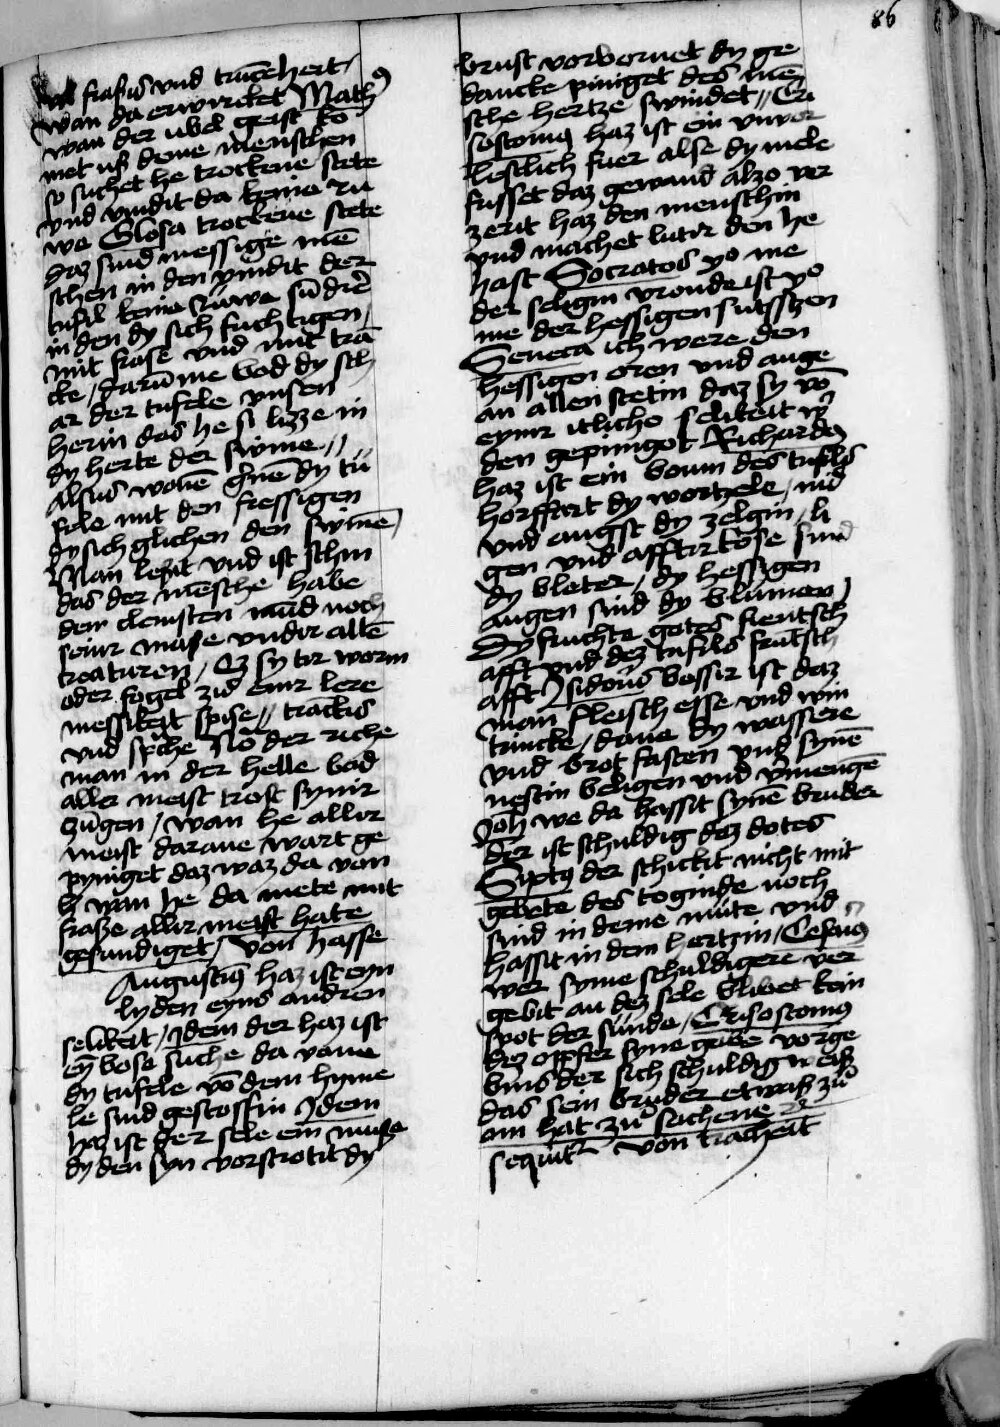 86
fraßis und trunkeheit /
wan da erwirket Math9
wan der ubel geist ko
met uß deme menschen
so suchet he trockene stete
und vindit da keine ru
we Glosa trockene stete
daz sind messige mē
schen in den vindit der
tufil keine ruwe sūdˀ
in den dy sich fuchtigen /
mit frase und mit trā
cke / darūme bad dy sch
ar der tufele unsen
herin das he si lizze in
dy herte der swine //
Alsus wonē gˀnē dy tu
fele mit den fressigen
dy sich glichen den swinē /
Man lesit und ist schin
das der mēsche habe
den cleinsten mūd noch
seinr mase undir allē
creaturen / Ez sy tir worm
oder fogel zu einr lere
messikeit spise // tranckis
und spˀche No der riche
man in der helle bad
aller meist trost synir
zūgen / wan he allir
meist darane wart ge
pyniget daz waz da von
h wan he da mete mit
fraße allir meist hate
gesundiget / Von hasse
Augustin9 haz ist eyn
lyden eyns andren
selikeit / Idem der haz ist
eȳ bose suche da vone
dy tufele vō dem hyme
le sind gestossin Idem
haz ist der sele ein muse
dy den syn vorscrotit dy
brust vorbornet dy ge
dancke piniget des mē
sche hertze swindet // Cri
sostomus haz ist ein unvor
leslich fuer alse dy mele
frisset daz gewand alzo ver
zerit haz den menschin
und machet lutir den he
hast Socrates yo me
der seligin vronde ist yo
me der hessigen suftszen
Seneca ich were den
hessigen oren und auge
an allen stetin daz sy vō
eynir itlicho selikeit w
den gepiniget Richardus
haz ist ein boum des tufils
horffart dy wortzele / nid
und angst dy zelgin / li
gen und afftirkose sind
dy bleter / dy hessigen
augen sind dy blumen /
Dy fruchte gotes fientsch
afft und dez tufils frūtsch
afft Isidorus bessir ist daz
man fleisch esse und win
trincke / dane dy wassere
und brot fasten und synē
nestin beligen und vˀmengē
Joh we da hassit synē bruder
der ist schuldig dez dotes
Sixtus der schickit nicht mit
gebete des toginde noch
sind in deme mute und
hassit in dem hertzin / Cesarius
wer syme schuldigere ver
gebit an dez sele blibet kein
spot der sunde / Crisostomus
dez opfer syne gabe vorge
bins der sich schuldig weiß
das sein bruder etwaß zu
ym hat zu sachene
sequitr von tracheit